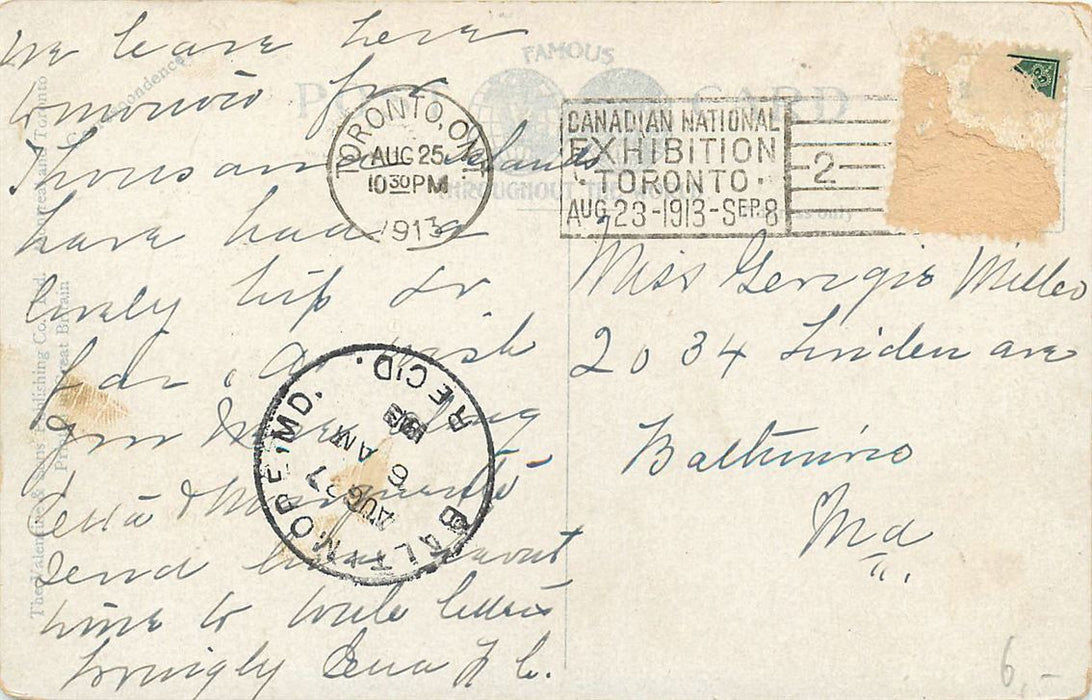 we leave here
tomorrow for
Thousand Islands
have had a
lovely trip so
far. wish
you were along
Send love
time to write letters
lovingly
FAMOUS
POST CARD
THROUGHOUT THE
Correspondence
TORONTO, ONT
AUG 25
10 30 PM
1913
CANADIAN NATIONAL
EXHIBITION
· TORONTO ·
AUG. 23-1913-SEP. 8
2
Miss Georgie
2034 Linden ave
Baltimore
Md
BALTIMORE, MD.
REC'D.
AUG 27
6 AM
The Valentine & Sons Publishing Co., Ltd., Montreal and Toronto
Printed in Great Britain
6,-